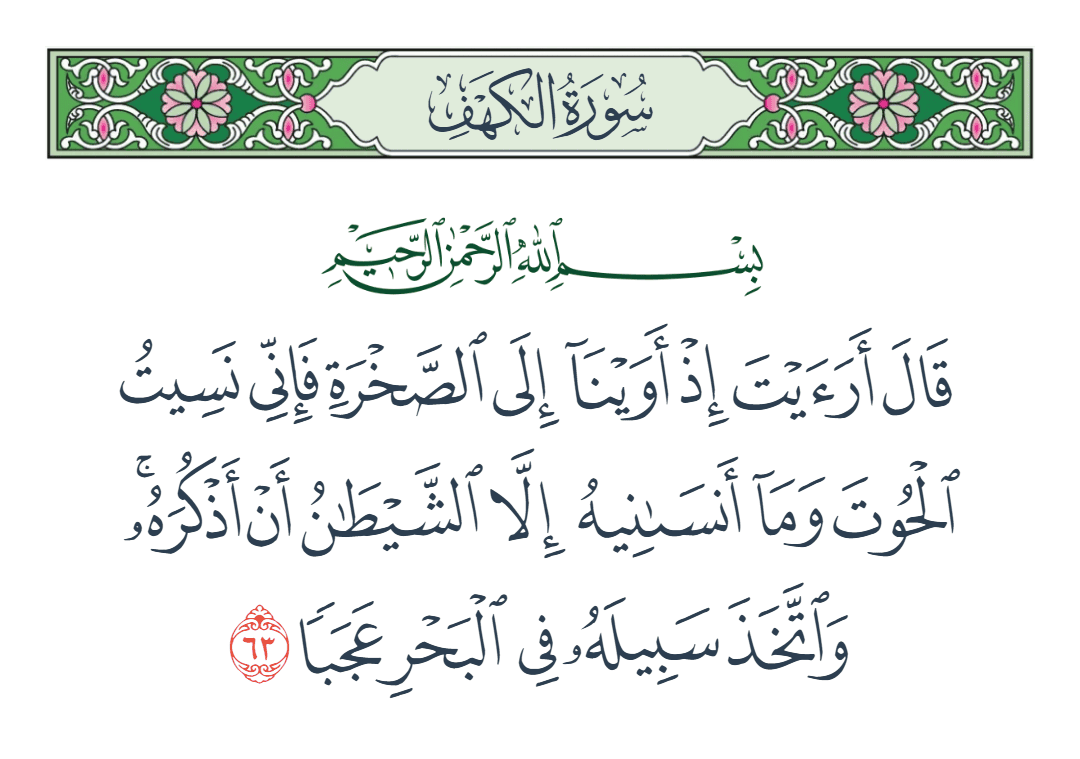 سُورَةُ الكَهْفِ
بِسْمِ ٱللَّهِ ٱلرَّحْمَٰنِ ٱلرَّحِيمِ
قَالَ أَرَءَيْتَ إِذْ أَوَيْنَآ إِلَى ٱلصَّخْرَةِ فَإِنِّى نَسِيتُ
ٱلْحُوتَ وَمَآ أَنسَىٰنِيهُ إِلَّا ٱلشَّيْطَٰنُ أَنْ أَذْكُرَهُۥ ۚ
وَٱتَّخَذَ سَبِيلَهُۥ فِى ٱلْبَحْرِ عَجَبًا ٦٣